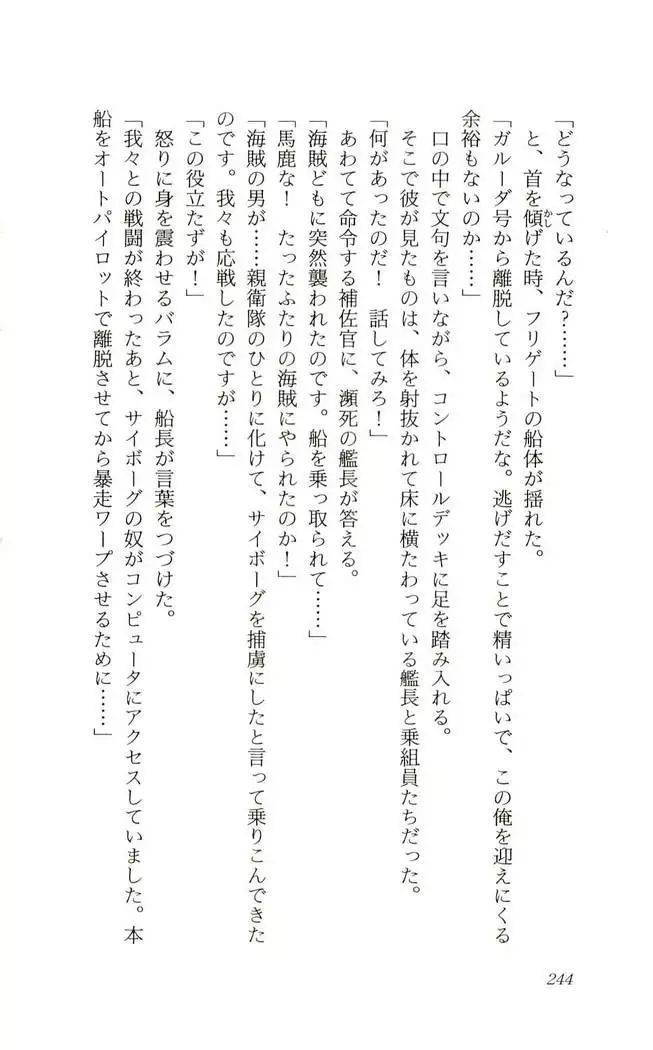 「どうなっているんだ?……」
と、首を傾げた時、フリゲートの船体が揺れた。
「ガルーダ号から離脱しているようだな。逃げだすことで精いっぱいで、この俺を迎えにくる
余裕もないのか……」
口の中で文句を言いながら、コントロールデッキに足を踏み入れる。
そこで彼が見たものは、体を射抜かれて床に横たわっている艦長と乗組員たちだった。
「何があったのだ! 話してみろ!」
あわてて命令する補佐官に、瀕死の艦長が答える。
「海賊どもに突然襲われたのです。船を乗っ取られて……」
「馬鹿な! たったふたりの海賊にやられたのか!」
「海賊の男が……親衛隊のひとりに化けて、サイボーグを捕虜にしたと言って乗りこんできた
のです。我々も応戦したのですが……」
「この役立たずが!」
怒りに身を震わせるバラムに、船長が言葉をつづけた。
「我々との戦闘が終わったあと、サイボーグの奴がコンピュータにアクセスしていました。本
船をオートパイロットで離脱させてから暴走ワープさせるために……」
かし
244